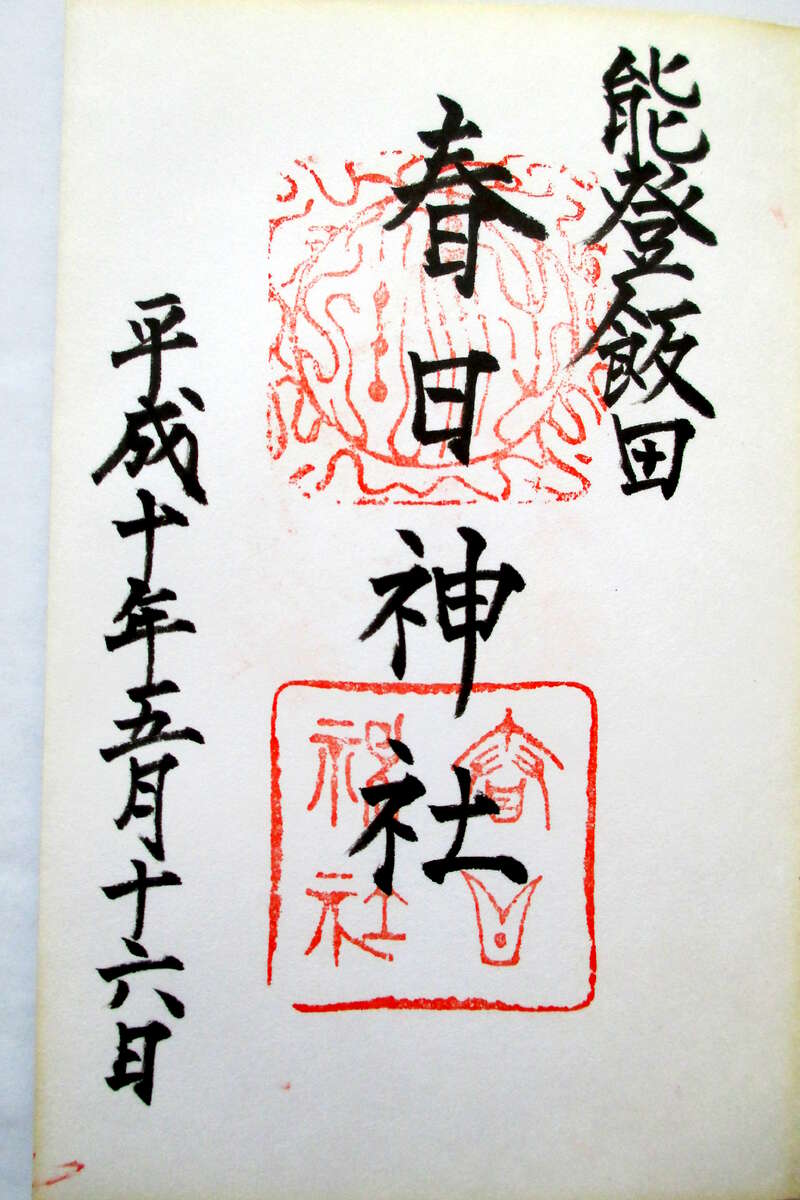 能登飯田
春日神社
平成十年五月十六日
春日
神社